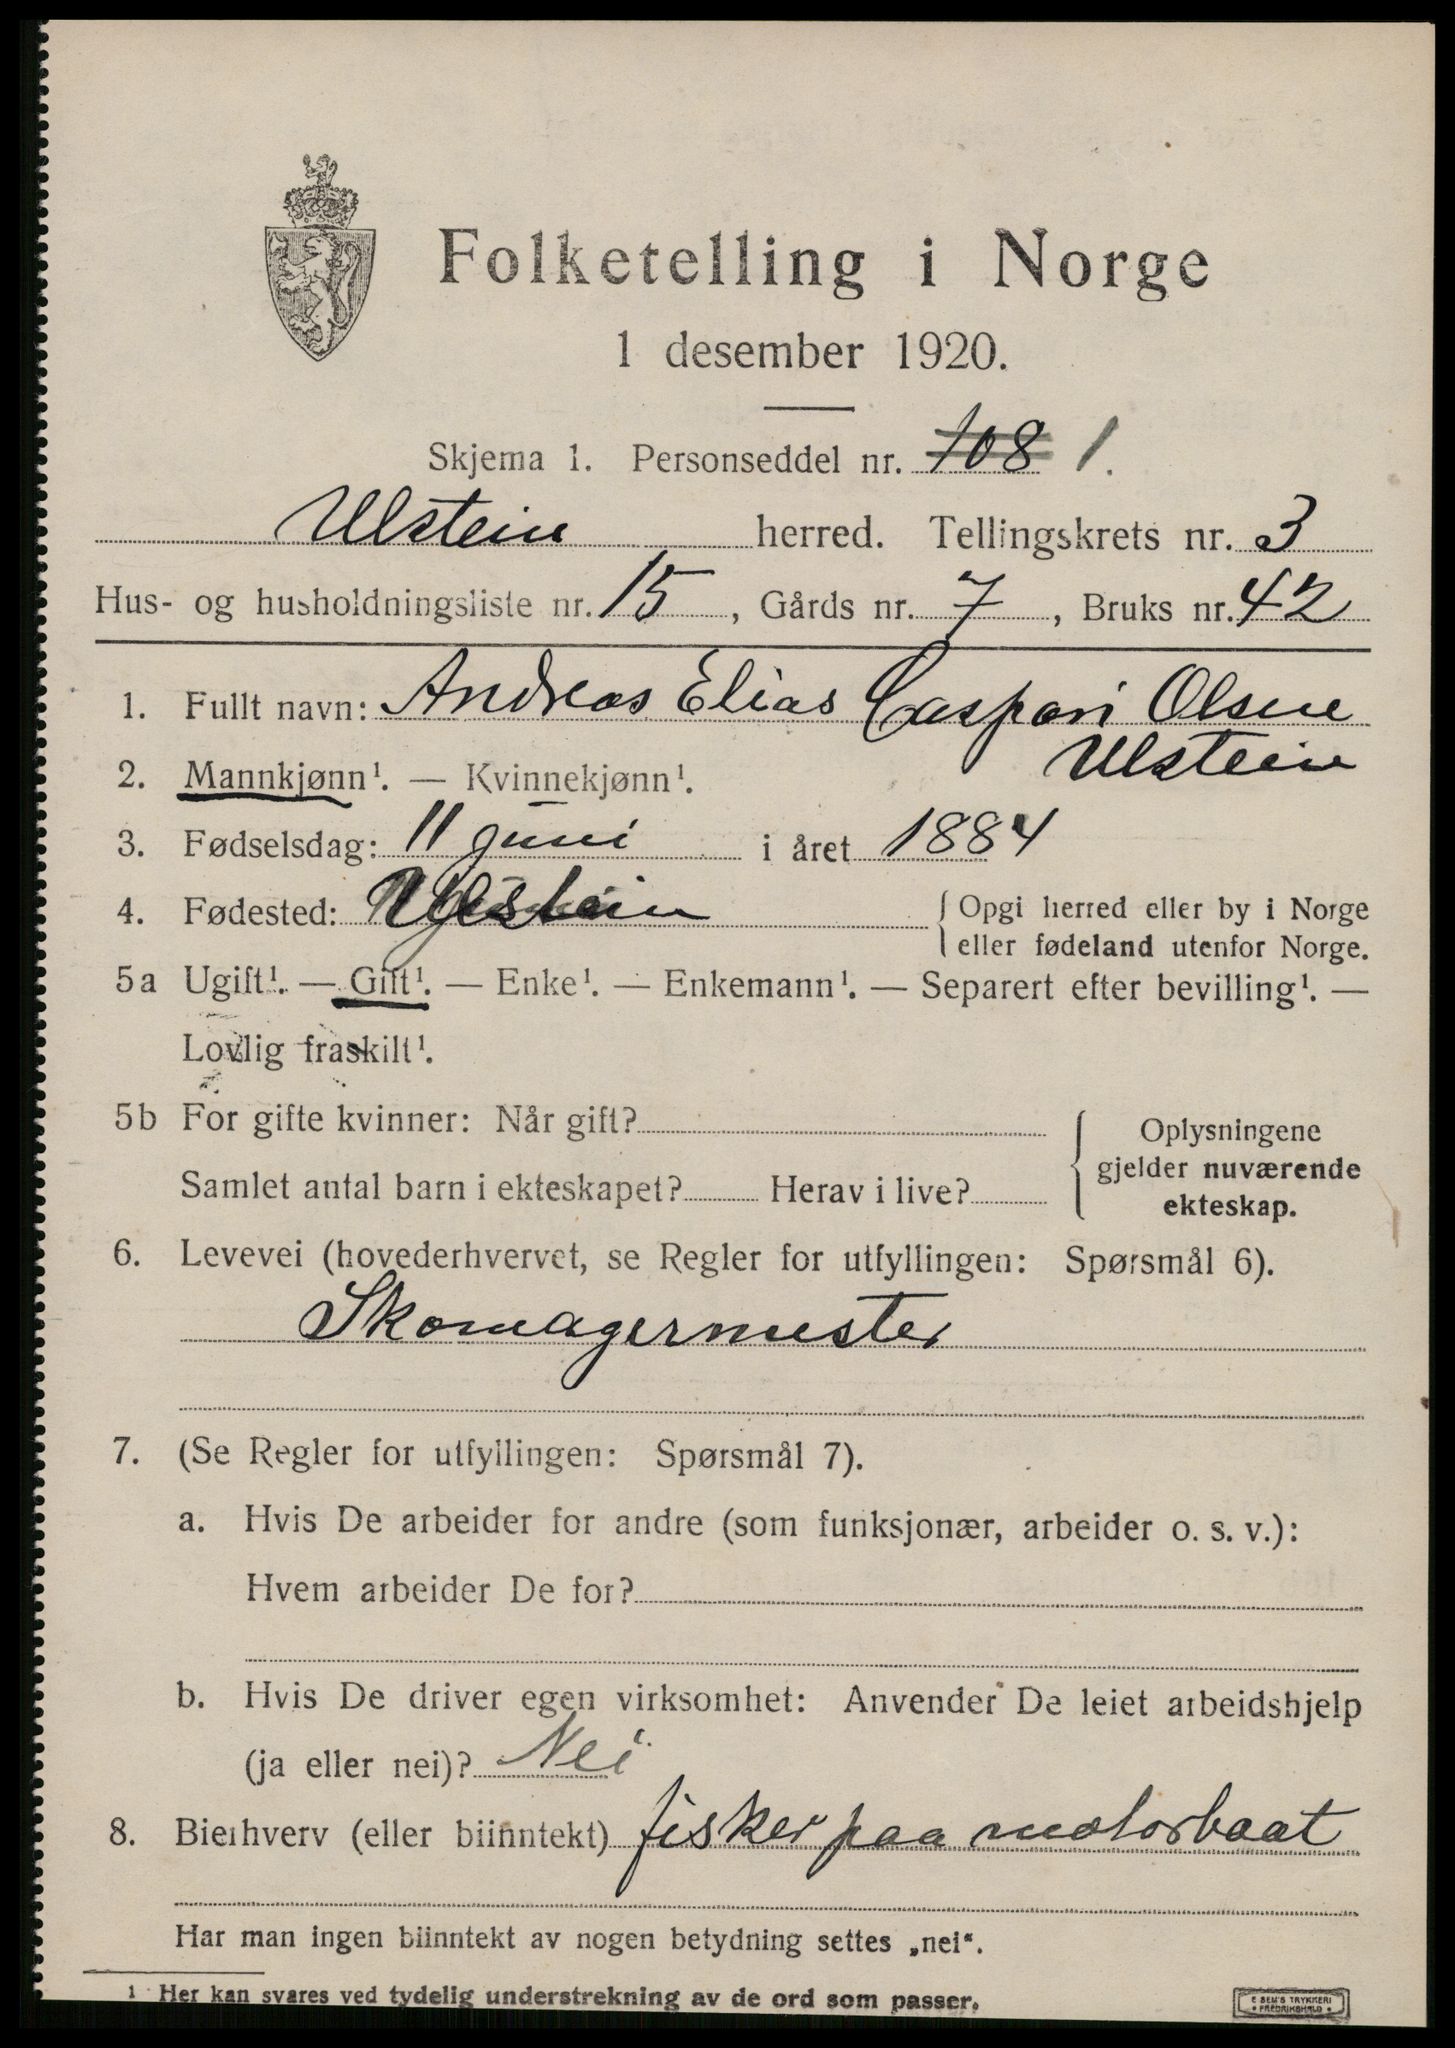 Folketelling i Norge
1 desember 1920.
Skjema 1. Personseddel nr. 108 1.
Ulstein herred. Tellingskrets nr. 3
Hus- og husholdningsliste nr. 15, Gårds nr. 7, Bruks nr. 42
1. Fullt navn: Andreas Elias Caspari Olsen
Ulstein
2. Mannkjønn¹. — Kvinnekjønn¹.
3. Fødselsdag: 11 juni i året 1884
4. Fødested: Ulstein { Opgi herred eller by i Norge
eller fødeland utenfor Norge.
5a Ugift¹. — Gift¹. — Enke¹. — Enkemann¹. — Separert efter bevilling¹. —
Lovlig fraskilt¹.
5b For gifte kvinner: Når gift?
Samlet antal barn i ekteskapet? Herav i live?
{ Oplysningene
gjelder nuværende
ekteskap.
6. Levevei (hovederhvervet, se Regler for utfyllingen: Spørsmål 6).
Skomagermester
7. (Se Regler for utfyllingen: Spørsmål 7).
a. Hvis De arbeider for andre (som funksjonær, arbeider o. s. v.):
Hvem arbeider De for?
b. Hvis De driver egen virksomhet: Anvender De leiet arbeidshjelp
(ja eller nei)? Nei
8. Bierhverv (eller biinntekt) fisker paa motorbaat
Har man ingen biinntekt av nogen betydning settes „nei“.
1 Her kan svares ved tydelig understrekning av de ord som passer.
E SEM'S TRYKKERI
• FREDRIKSHALD •